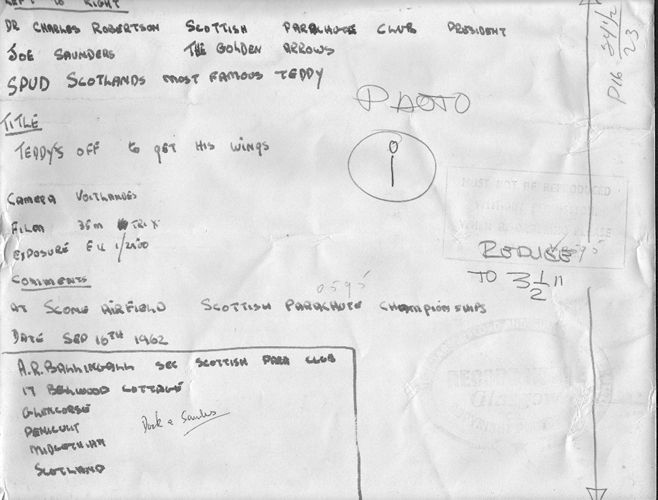 LEFT TO RIGHT
DR CHARLES ROBERTSON SCOTTISH PARACHUTE CLUB PRESIDENT
JOE SAUNDERS THE GOLDEN ARROWS
SPUD SCOTLANDS MOST FAMOUS TEDDY
PHOTO
TITLE
TEDDY'S OFF to get HIS WINGS
CAMERA
FILM 35m TRI X
EXPOSURE F11 1/2500
MUST NOT BE REPRODUCED
REDUCE
TO 3 1/2"
COMMENTS
0595
AT SCONE AIRFIELD SCOTTISH PARACHUTE CHAMPIONSHIPS
DATE SEP 16TH 1962
A.R. BALLINGALL SEC SCOTTISH PARA CLUB
17 BELLWOOD COTTAGE
GLENCORSE
PENICUIT
MIDLOTHIAN
SCOTLAND
P16
23